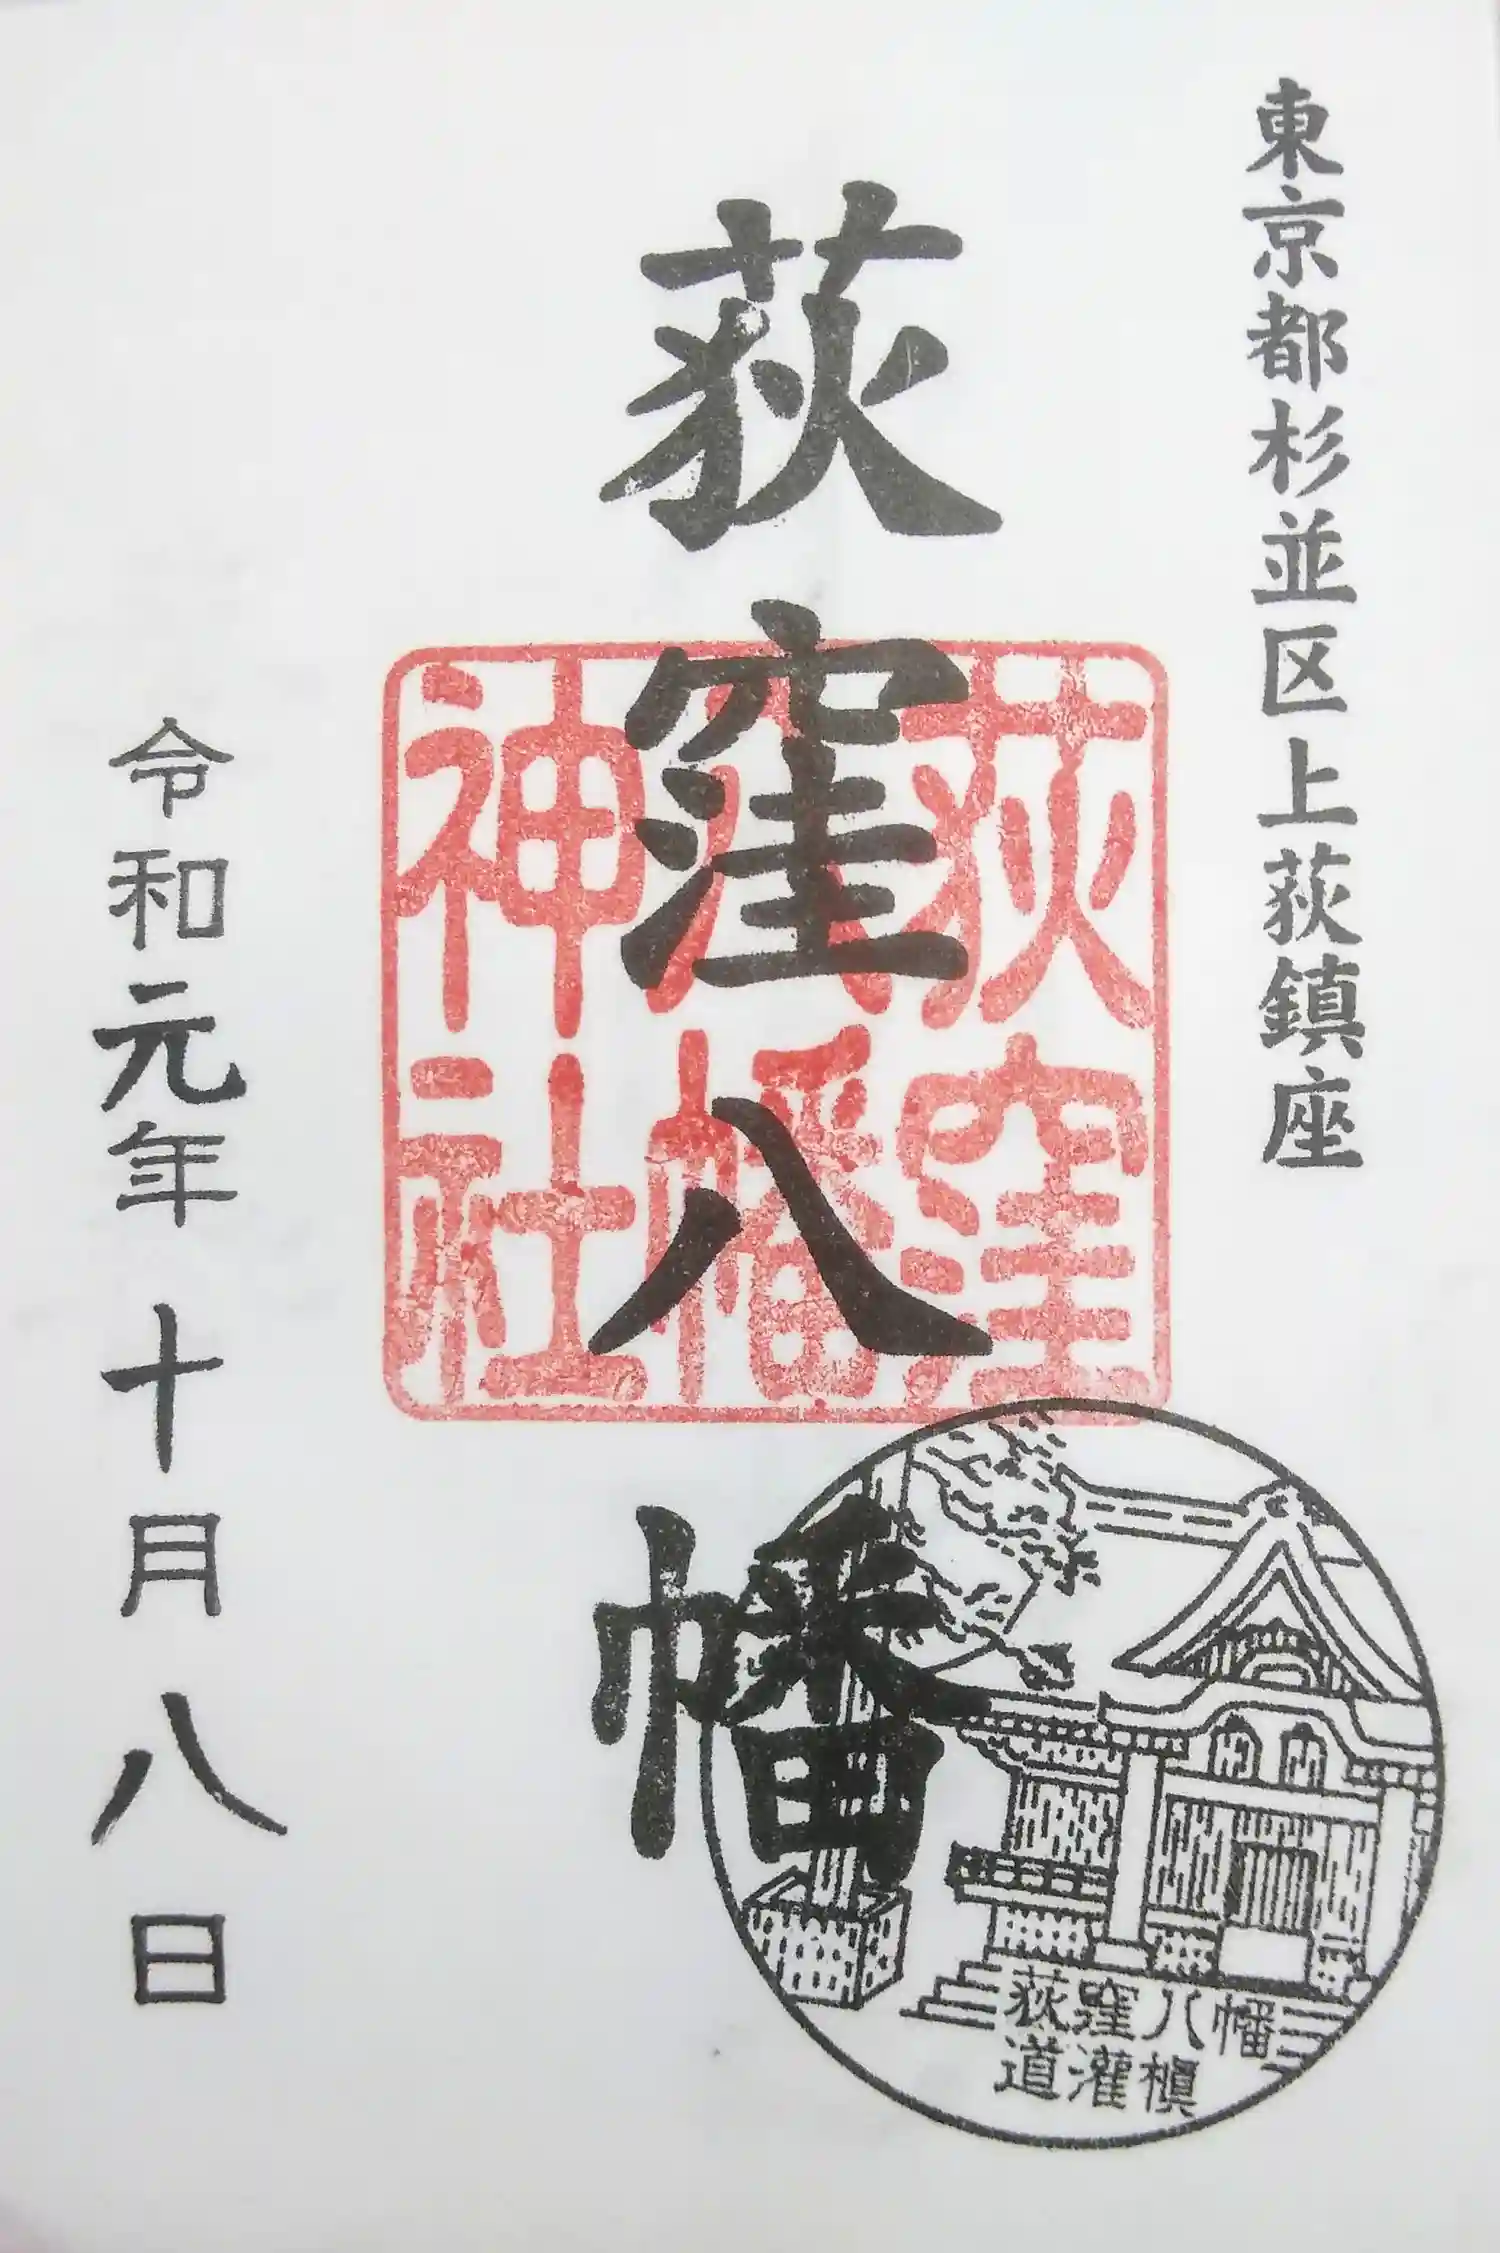 東京都杉並区上荻鎮座
荻窪八幡
荻窪
八幡
神社
荻窪八幡
道灌槇
令和元年十月八日